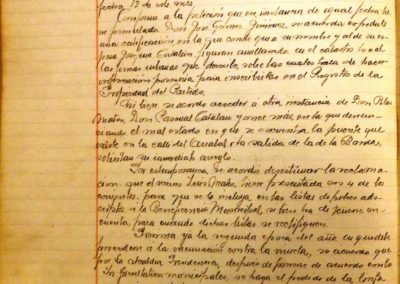 fecha 13 de este mes.
Conforme a la petición que en instancia de igual fecha ha
formulado Don José Gómez Giménez, se acuerda expedirle
una certificación en la que conste que a su nombre y al de su es-
posa Josefa Catalán, figuran amillarados en el catastro local
las fincas urbanas que describe, sobre las cuales trata de hacer
información posesoria para inscribirlas en el Registro de la
Propiedad del Partido.
Si bien se acordó acceder a otra instancia de Don Blas
Mateo, Don Pascual Catalán y once más, en la que denun-
ciando el mal estado en que se encuentra la fuente que
existe en la calle del Arrabal a la salida de la de la Parda,
solicitan su inmediato arreglo.
Sin votación se acordó desestimar la reclama-
ción que el vecino Luis Mako, tiene presentada en 4 de los
corrientes, para que se le incluya en las listas de pobres ads-
criptos a la Beneficencia Municipal, si bien ha de tenerse en
cuenta para cuando dichas listas se rectifiquen.
Próxima ya la segunda época del año en que debe
procederse a la vacunación contra la viruela, se acuerda que
por la Alcaldía Presidencia, después de ponerse de acuerdo con los
Sres. facultativos municipales, se haga el pedido de la linfa